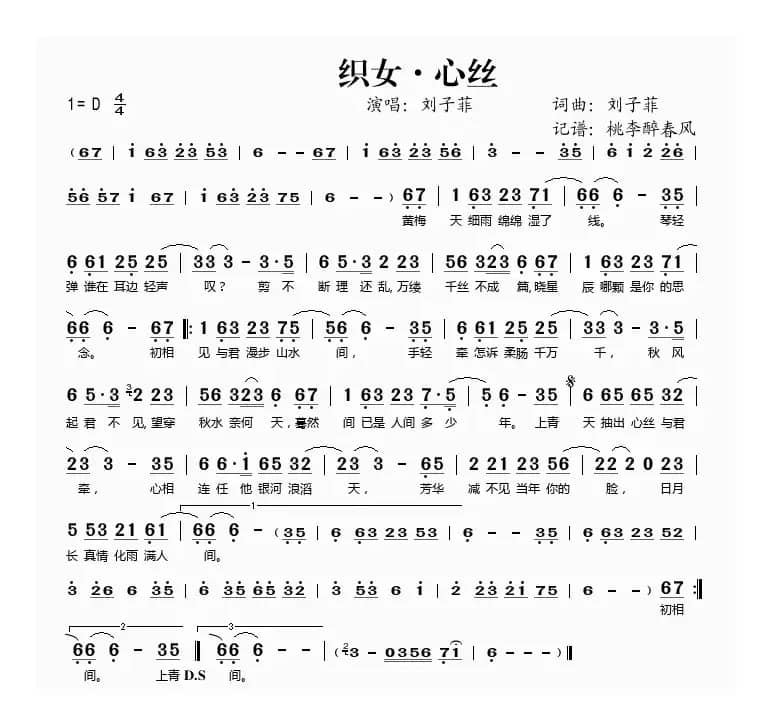 织女·心丝
1= D 4/4 演唱: 刘子菲 词曲: 刘子菲
记谱: 桃李醉春风
( 6 7 | 1 6 3 2 3 5 3 | 6 - - 6 7 | 1 6 3 2 3 5 6 | 3 - - 3 5 | 6 1 2 2 6 |
5 6 5 7 1 6 7 | 1 6 3 2 3 7 5 | 6 - - ) 6 7 | 1 6 3 2 3 7 1 | 6 6 6 - 3 5 |
黄梅 天 细雨 绵绵 湿了 线。 琴轻
6 6 1 2 5 2 5 | 3 3 3 - 3·5 | 6 5·3 2 2 3 | 5 6 3 2 3 6 6 7 | 1 6 3 2 3 7 1 |
弹 谁在 耳边 轻声 叹? 剪 不 断 理 还 乱,万缕 千丝 不成 篇,晓星 辰 哪颗 是你 的思
6 6 6 - 6 7 |: 1 6 3 2 3 7 5 | 5 6 6 - 3 5 | 6 6 1 2 5 2 5 | 3 3 3 - 3·5 |
念。 初相 见 与君 漫步 山水 间, 手轻 牵 怎诉 柔肠 千万 千, 秋 风
6 5·3 3 2 2 3 | 5 6 3 2 3 6 6 7 | 1 6 3 2 3 7·5 | 5 6 - 3 5 | 6 6 5 6 5 3 2 |
起 君 不 见,望穿 秋水 奈何 天,蓦然 间 已是 人间 多 少 年。 上青 天 抽出 心丝 与君
2 3 3 - 3 5 | 6 6·1 6 5 3 2 | 2 3 3 - 6 5 | 2 2 1 2 3 5 6 | 2 2 2 0 2 3 |
牵, 心相 连 任 他 银河 浪滔 天, 芳华 减 不见 当年 你的 脸, 日月
1
5 5 3 2 1 6 1 | 6 6 6 - ( 3 5 | 6 6 3 2 3 5 3 | 6 - - 3 5 | 6 6 3 2 3 5 2 |
长 真情 化雨 满人 间。
3 2 6 6 3 5 | 6 3 5 6 5 3 2 | 3 5 3 6 1 | 2 2 3 2 1 7 5 | 6 - - ) 6 7 :|
初相
2 3
6 6 6 - 3 5 || 6 6 6 - - | ( 2 3 - 0 3 5 6 7 1 | 6 - - - ) ||
间。 上青 D.S 间。